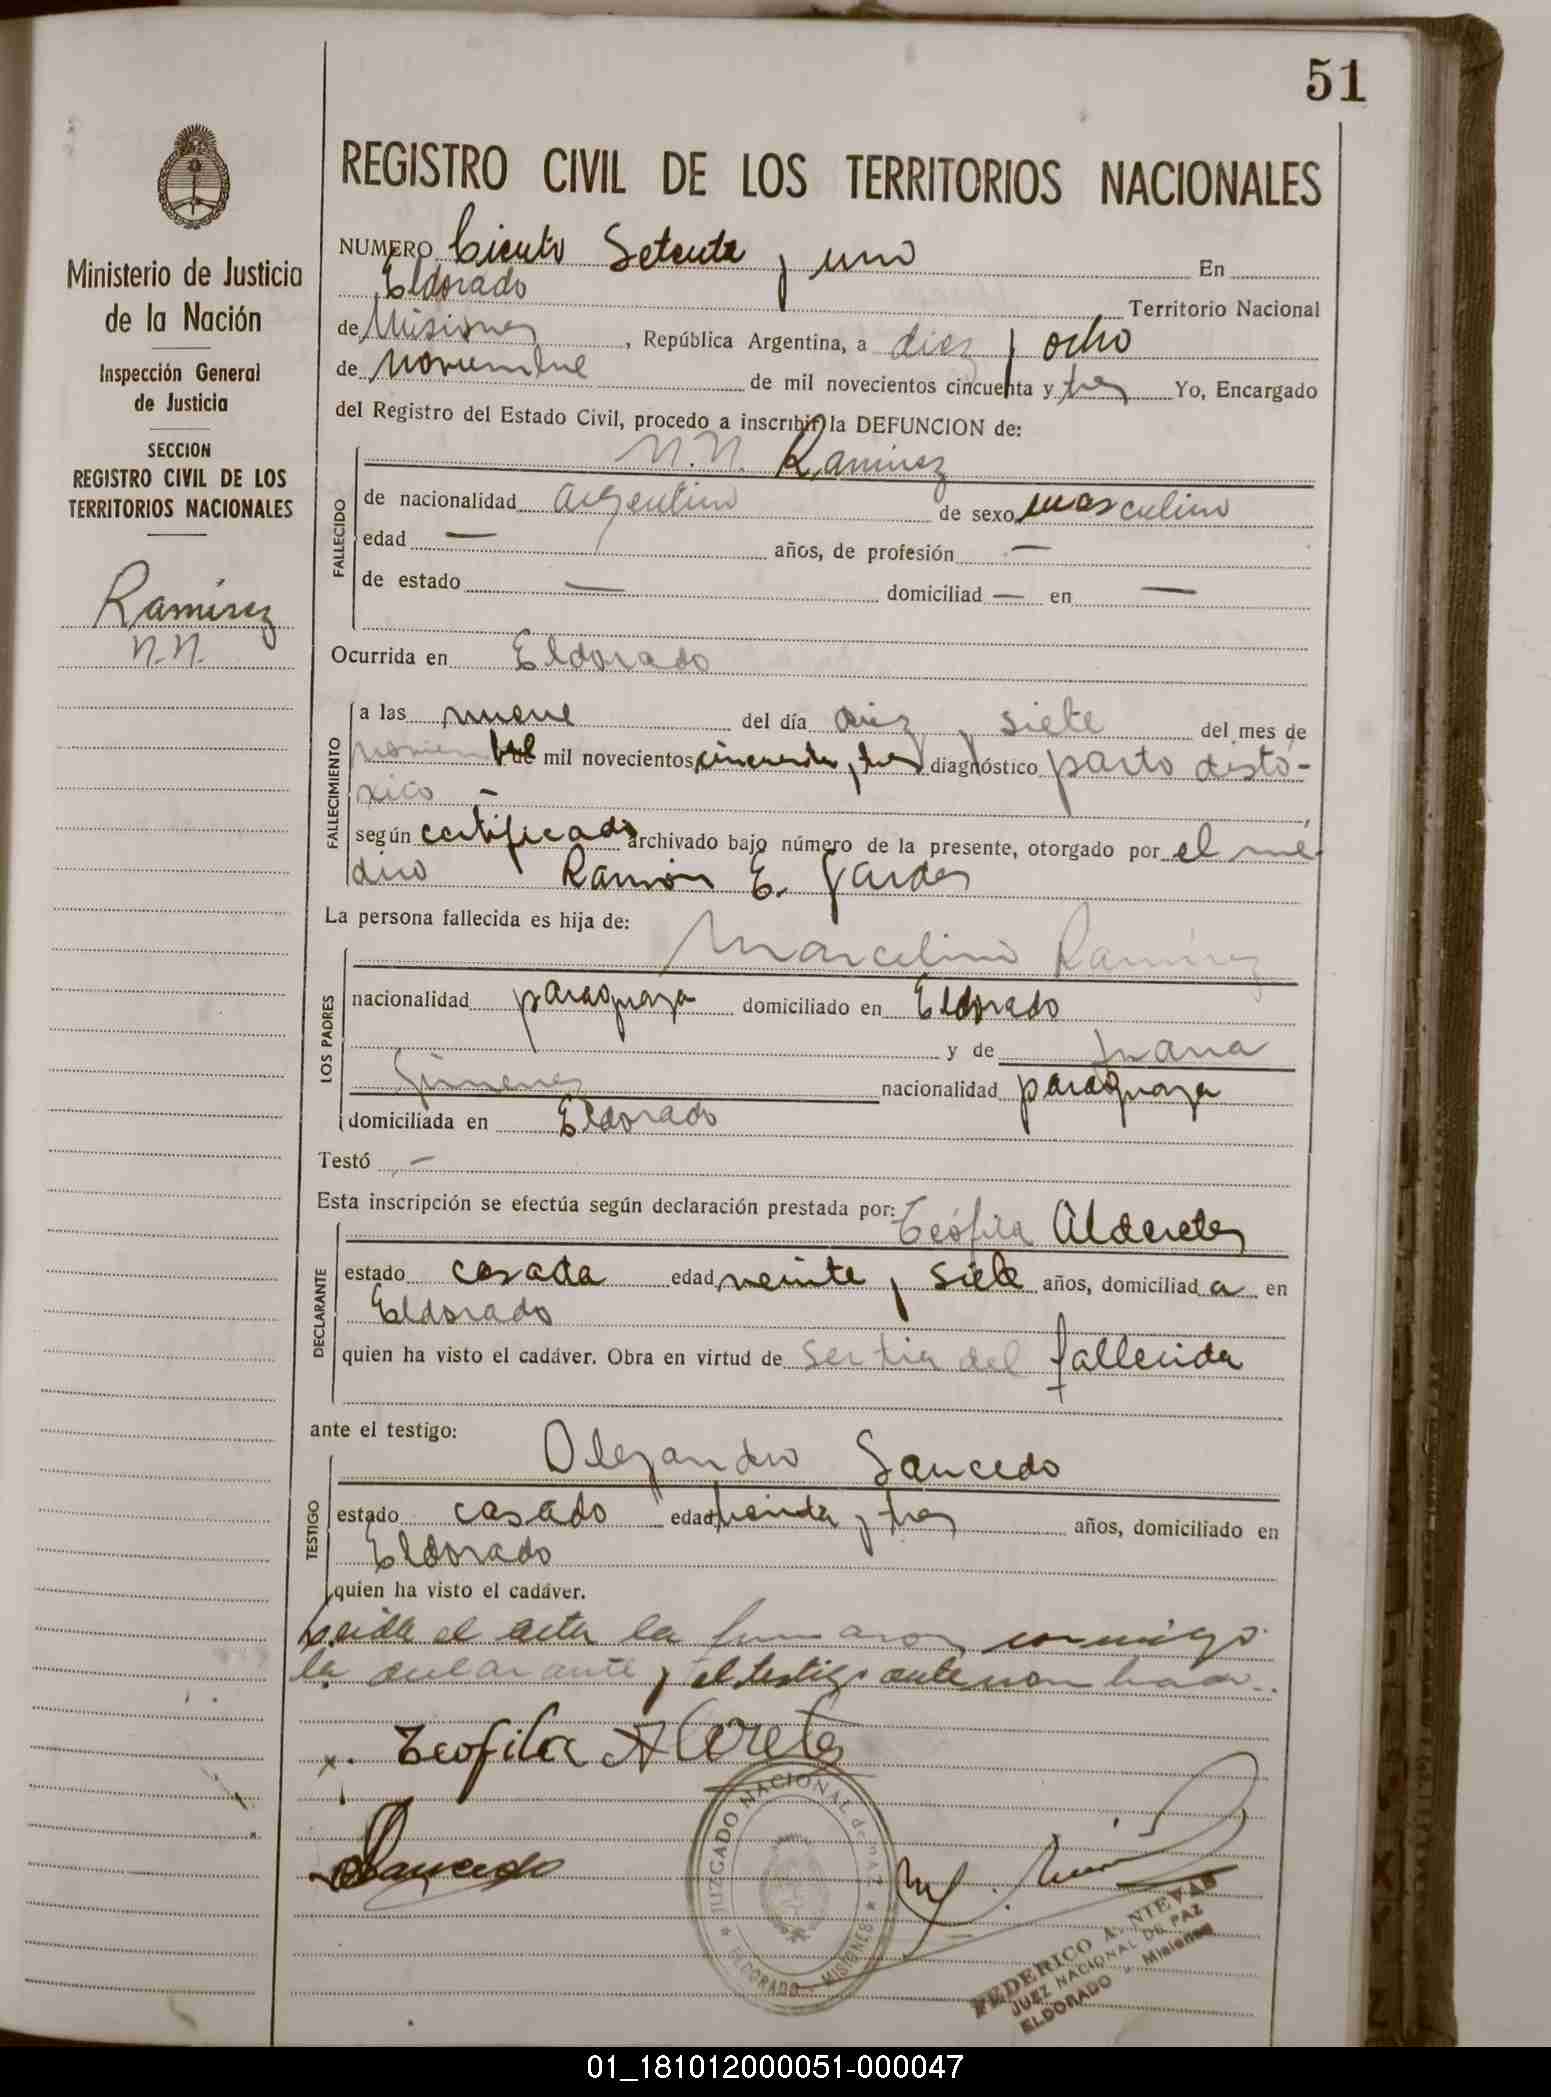 51
REGISTRO CIVIL DE LOS TERRITORIOS NACIONALES
Ministerio de Justicia
de la Nación
Inspección General
de Justicia
SECCION
REGISTRO CIVIL DE LOS
TERRITORIOS NACIONALES
Ramirez
N.N.
NUMERO Ciento Setenta y uno En
Eldorado Territorio Nacional
de Misiones, República Argentina, a diez y ocho
de noviembre de mil novecientos cincuenta y tres Yo, Encargado
del Registro del Estado Civil, procedo a inscribir la DEFUNCION de:
N.N. Ramirez
FALLECIDO
de nacionalidad argentino de sexo masculino
edad — años, de profesión —
de estado — domiciliad — en —
Ocurrida en Eldorado
FALLECIMIENTO
a las nueve del día diez y siete del mes de
noviembre mil novecientos cincuenta y tres diagnóstico parto distó-
xico —
según certificado archivado bajo número de la presente, otorgado por el mé-
dico Ramón E.
La persona fallecida es hija de:
LOS PADRES
Marcelino Ramirez
nacionalidad paraguaya domiciliado en Eldorado
y de Juana
Gimenez nacionalidad paraguaya
domiciliada en Eldorado
Testó —
Esta inscripción se efectúa según declaración prestada por: Teófila Alderetes
DECLARANTE
estado casada edad veinte y siete años, domiciliad a en
Eldorado
quien ha visto el cadáver. Obra en virtud de ser tia del fallecido
ante el testigo:
TESTIGO
Alejandro Saucedo
estado casado edad treinta y tres años, domiciliado en
Eldorado
quien ha visto el cadáver.
Leida el acta la firmaron conmigo
la declarante y el testigo antenombrado..
x. Teofila Alderetes
Saucedo
JUZGADO NACIONAL de PAZ
ELDORADO - MISIONES
FEDERICO A. NIEVAS
JUEZ NACIONAL DE PAZ
ELDORADO - Misiones
01_181012000051-000047